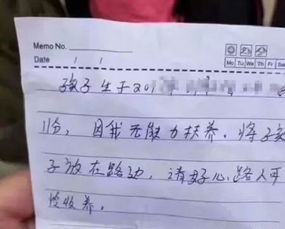 Memo No.
Mo Tu We Th Fr Sa
Date / /
孩子生于201
份，因我无能力扶养．将孩
子放在路边，请好心路人可
怜收养．